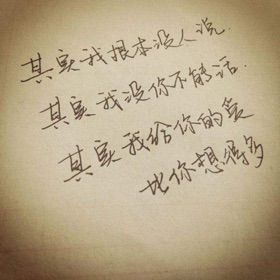 其实我根本没人说.
其实我没你不能活.
其实我给你的爱
比你想得多